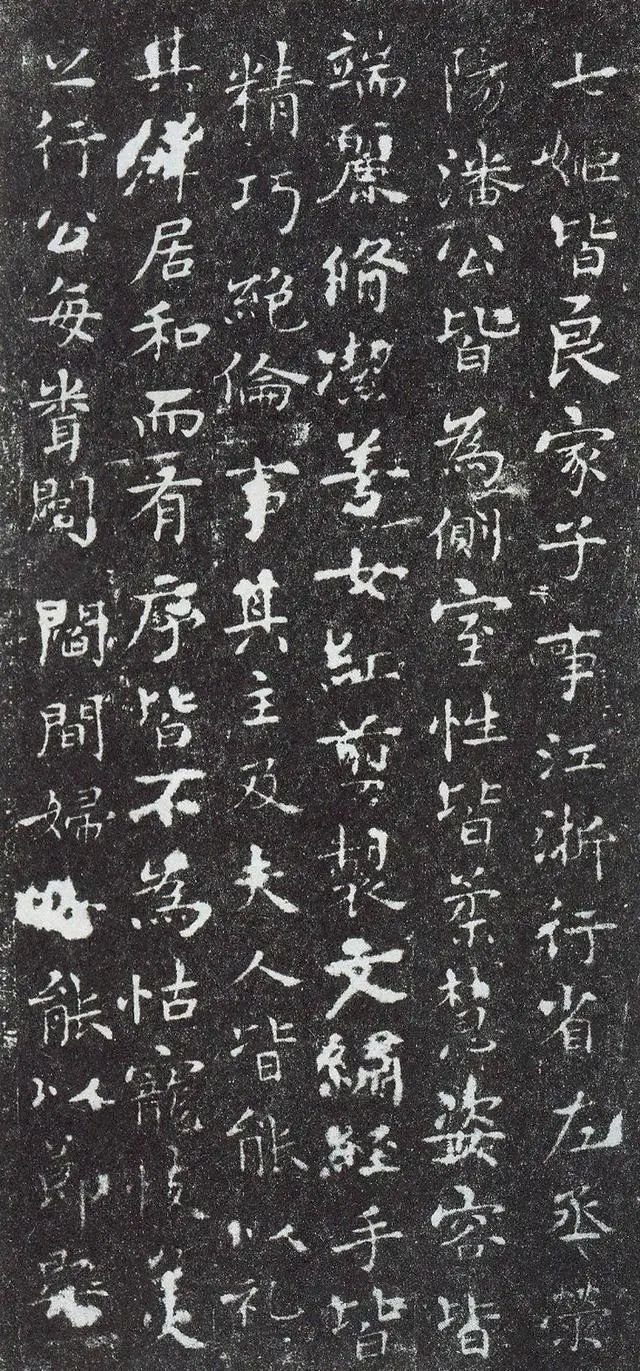 七姬皆良家子事江浙行省左丞滎
陽潘公皆為側室性皆柔慧姿容皆
端麗脩潔善女紅剪製文繡經手皆
精巧絕倫事其主及夫人皆能以礼
其居和而有序皆不為怙寵忮美
之行公每聞閭閻間婦能以節